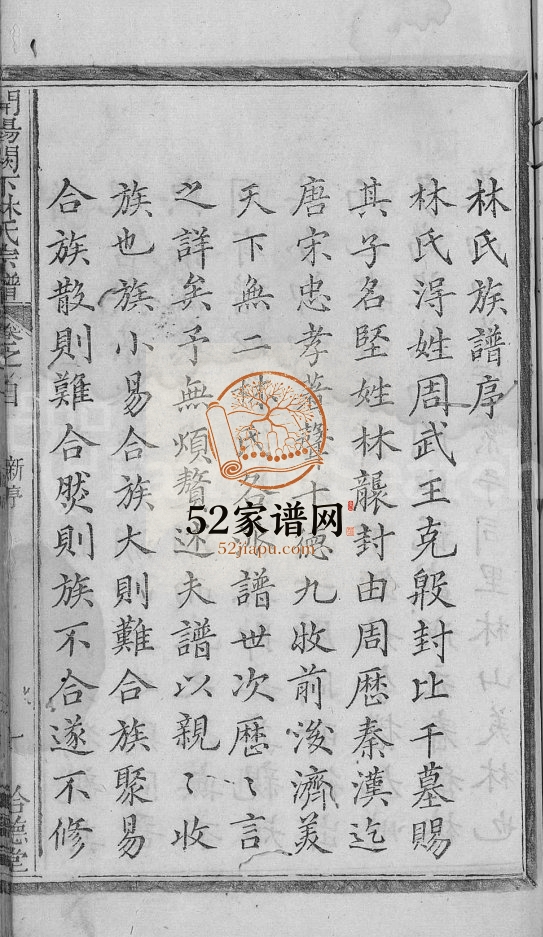 林氏族譜序
林氏淂姓周武王克殷封比干墓賜
其子名堅姓林襲封由周歷秦漢迄
唐宋忠孝著聲十德九牧前後濟美
天下無二林氏各派譜世次歷〻言
之詳矣予無煩贅述夫譜以親〻收
族也族小易合族大則難合族聚易
合族散則難合然則族不合遂不修
開陽闕下林氏宗譜
卷之
新序
德堂
52家谱网
52jiapu.com